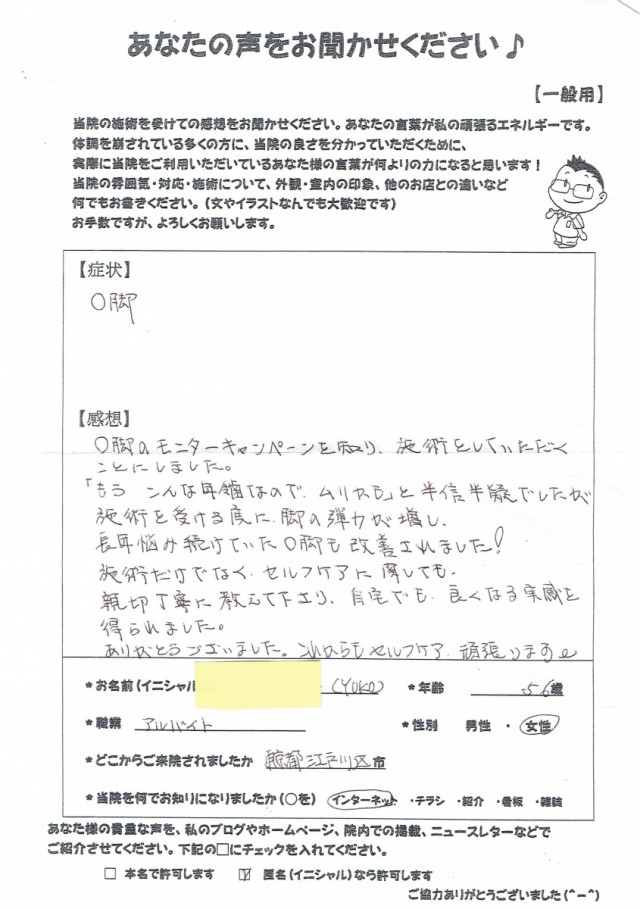 あなたの声をお聞かせください♪
【一般用】
当院の施術を受けての感想をお聞かせください。あなたの言葉が私の頑張るエネルギーです。
体調を崩されている多くの方に、当院の良さを分かっていただくために、
実際に当院をご利用いただいているあなた様の言葉が何よりの力になると思います!
当院の雰囲気・対応・施術について、外観・室内の印象、他のお店との違いなど
何でもお書きください。(文やイラストなんでも大歓迎です)
お手数ですが、よろしくお願いします。
【症状】
O脚
【感想】
O脚のモニターキャンペーンを知り、施術をしていただく
ことにしました。
「もう こんな年齢なので、ムリかも」と半信半疑でしたが
施術を受ける度に、脚の弾力が増し、
長年悩み続けていたO脚も改善されました!
施術だけでなく、セルフケアに関しても、
親切丁寧に教えて下さり、自宅でも、良くなる実感を
得られました。
ありがとうございました。これからもセルフケア、頑張ります
*お名前(イニシャル (YUKO) *年齢 56歳
*職業 アルバイト *性別 男性 ・ 女性
*どこからご来院されましたか 東京都江戸川区市
*当院を何でお知りになりましたか(○を) インターネット ・チラシ ・紹介 ・看板 ・雑誌
あなた様の貴重な声を、私のブログやホームページ、院内での掲載、ニュースレターなどで
ご紹介させてください。下記の□にチェックを入れてください。
□ 本名で許可します ☑ 匿名(イニシャル)なら許可します
ご協力ありがとうございました(^-^)